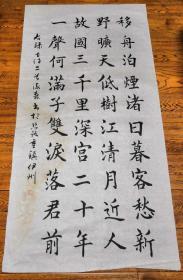 移舟泊煙渚日暮客愁新
野曠天低樹江清月近人
故國三千里深宮二十年
一聲何滿子雙淚落君前